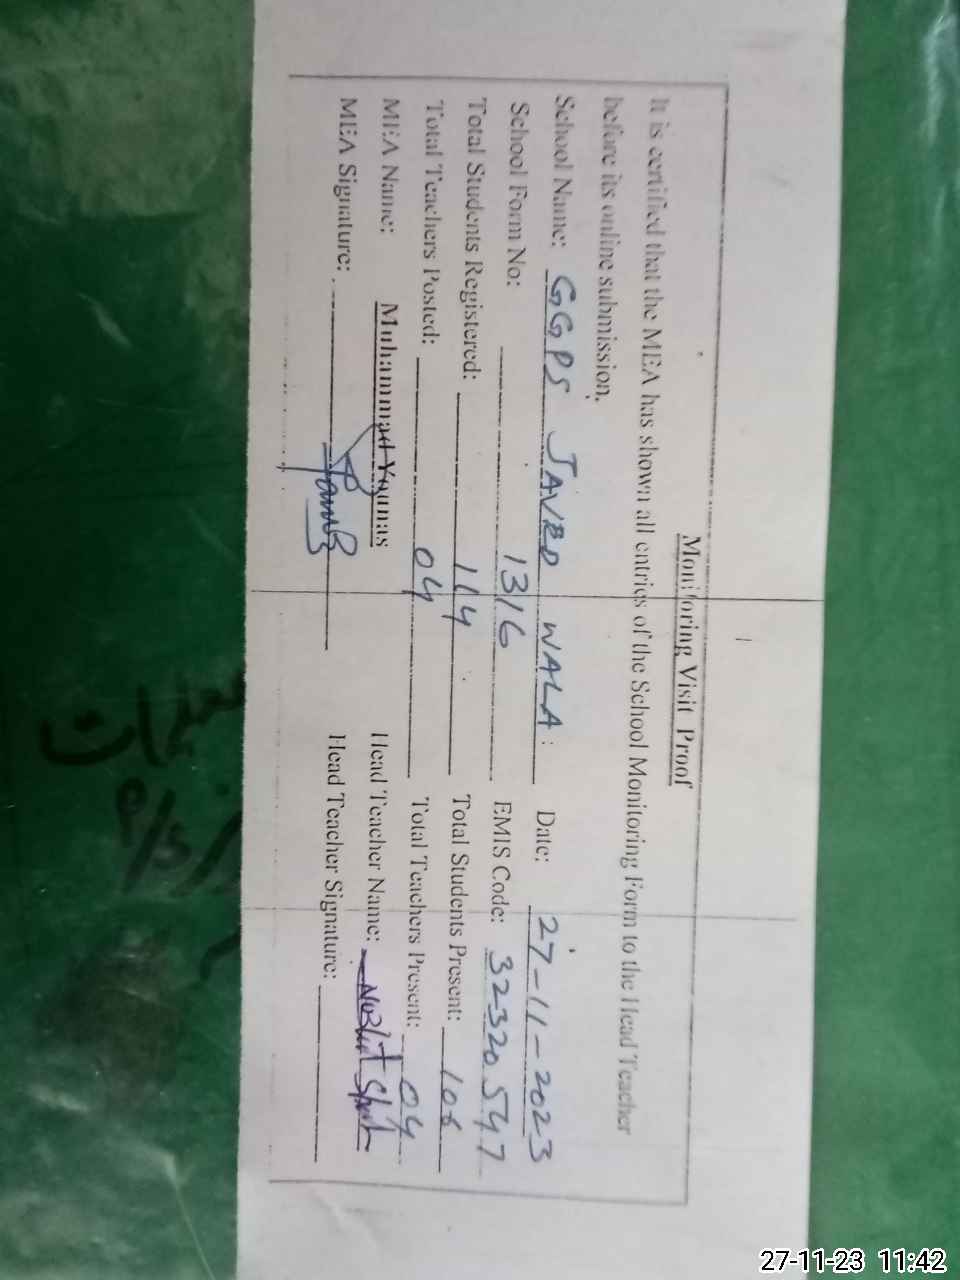 Monitoring Visit Proof
It is certified that the MEA has shown all entries of the School Monitoring Form to the Head Teacher
before its online submission.
School Name: GGPS JAVED WALA: Date: 27-11-2023
School Form No: 1316 EMIS Code: 32320547
Total Students Registered: 114 Total Students Present: 106
Total Teachers Posted: 04 Total Teachers Present: 04
MEA Name: Muhammad Younas Head Teacher Name:
MEA Signature: Head Teacher Signature:
P/S/
27-11-23 11:42